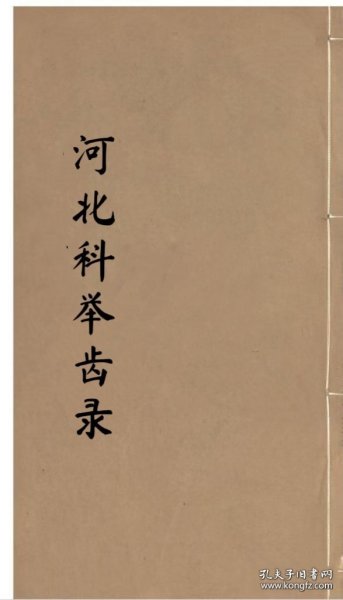 河北科举齿录
孔夫子旧书网
www.kongfz.com